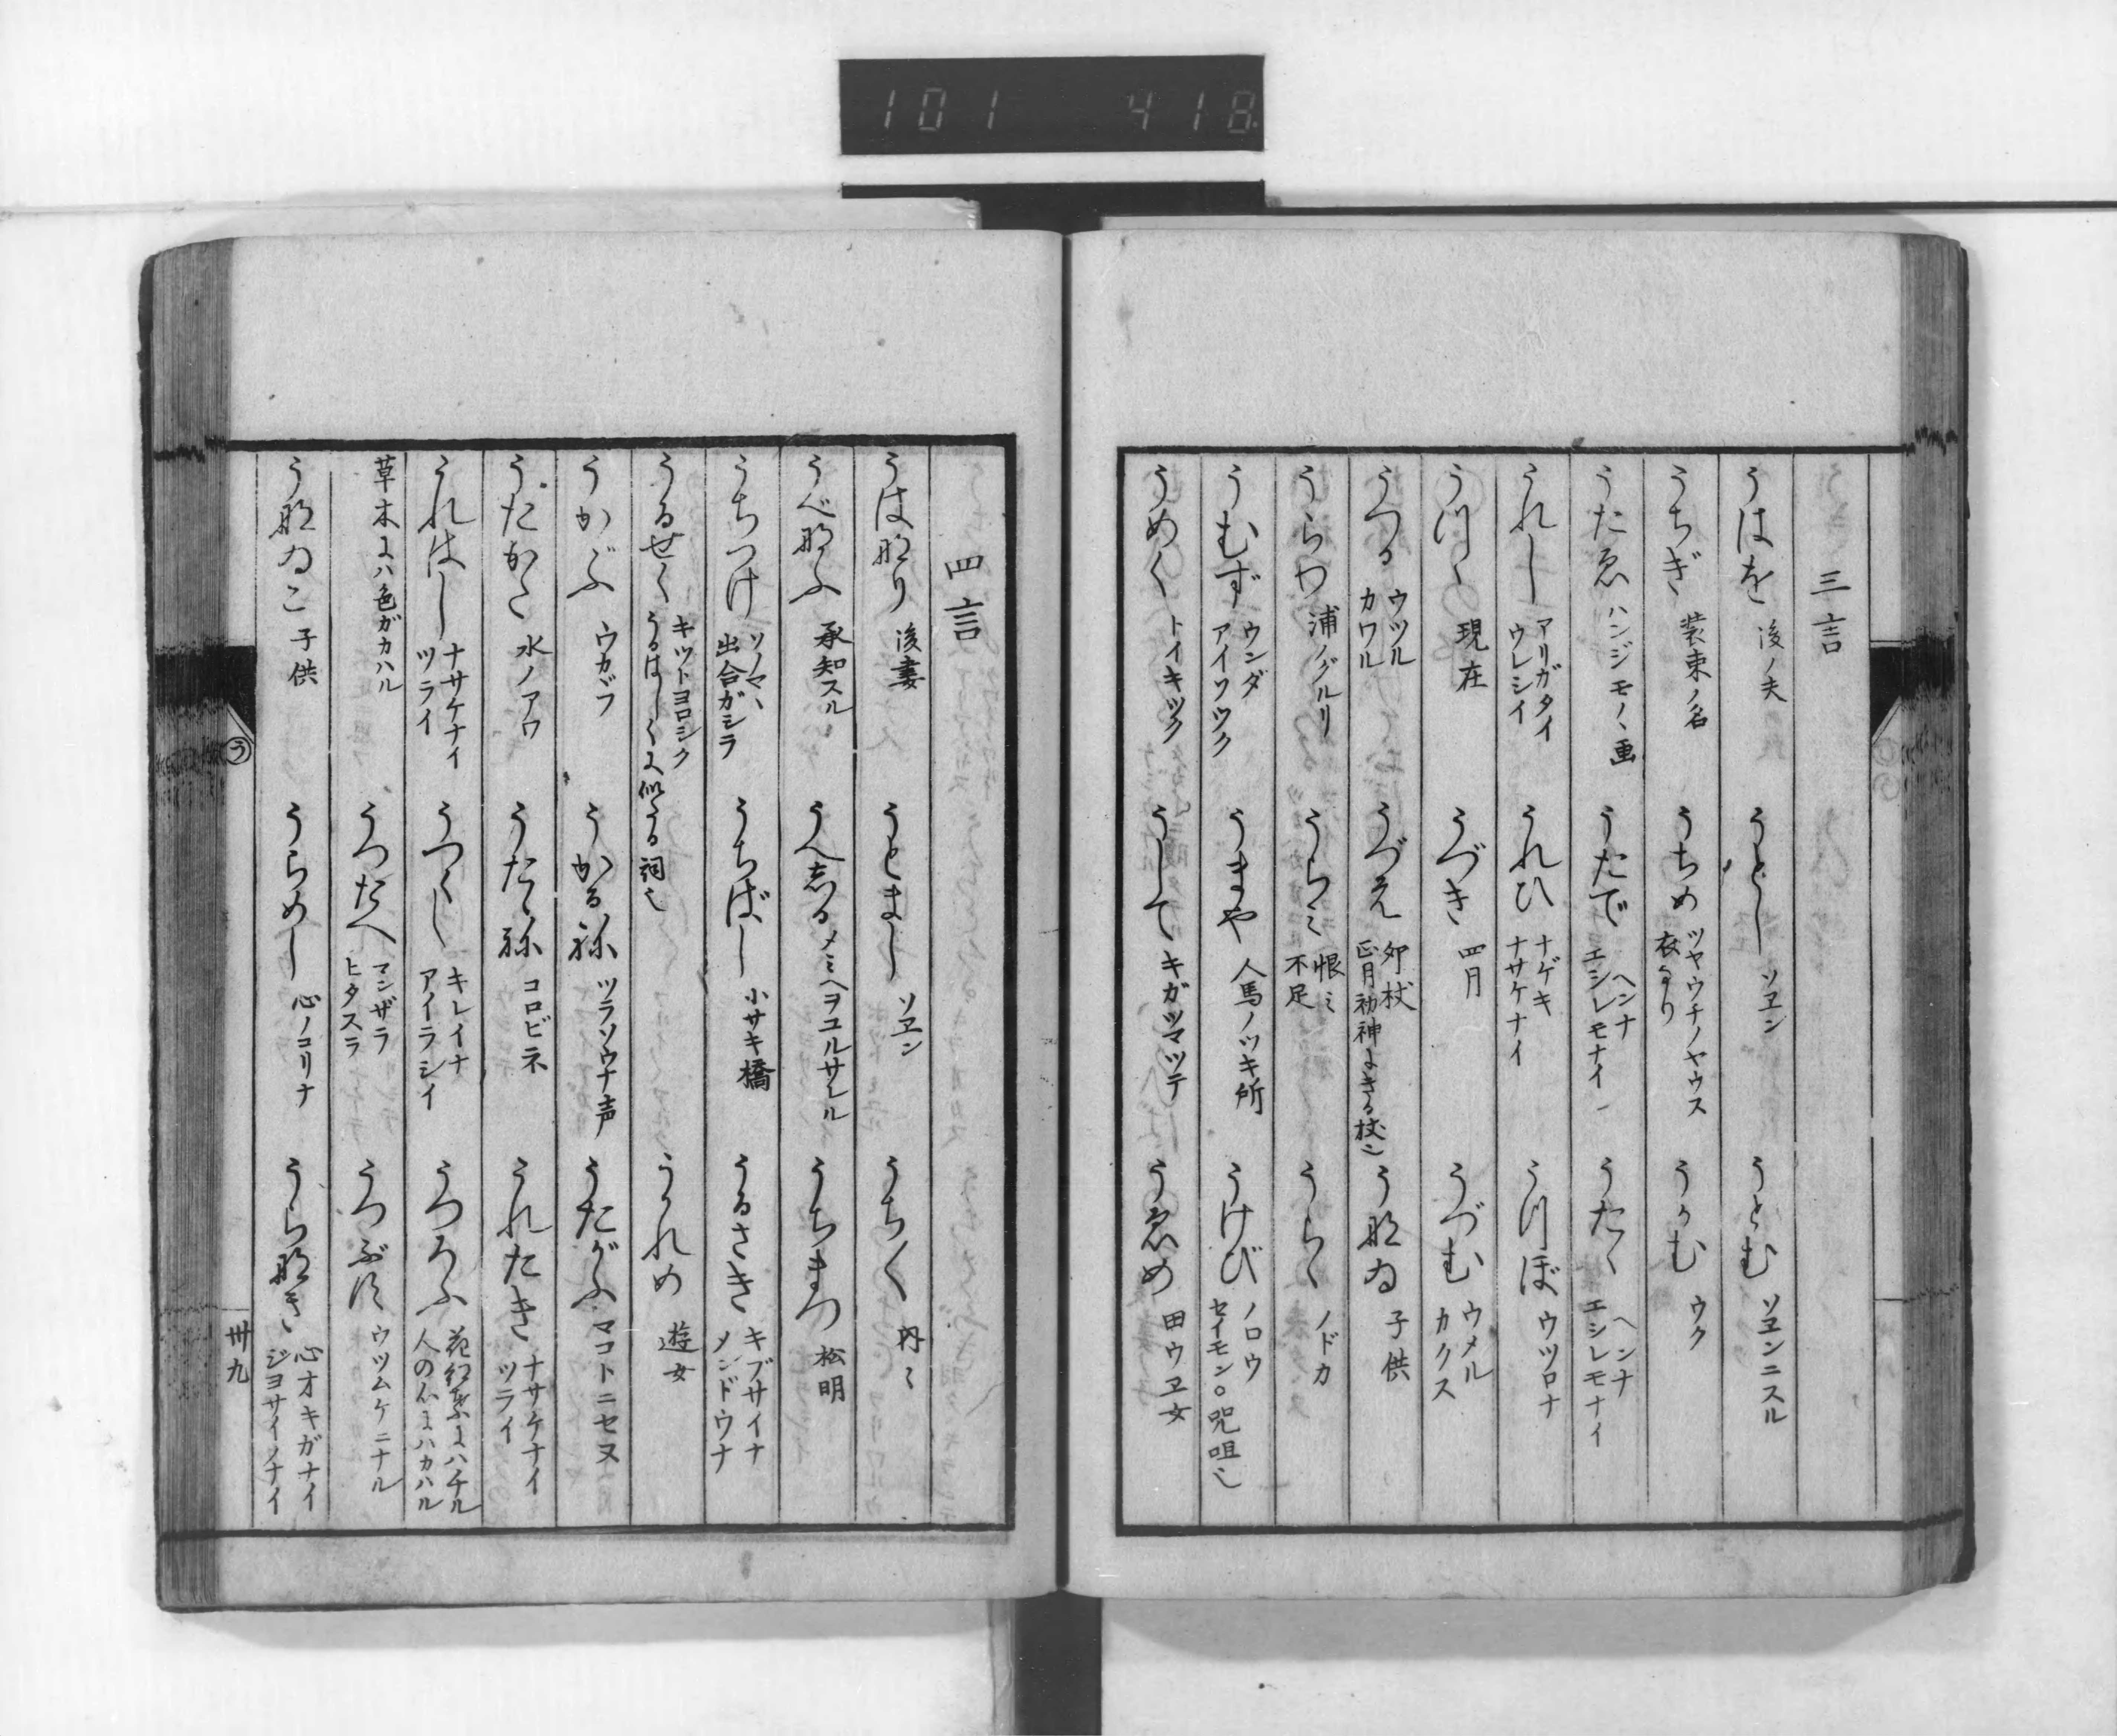 101 418
三言
うはを 後ノ夫 うとし ソヱン うとむ ソヱンニスル
うちぎ 装束ノ名 うちめ ツヤウチノヤウス 衣なり うかむ ウク
うたゑ ハンジモノヽ画 うたて ヘンナ エシレモナイ うたゝ ヘンナ エシレモナイ
うれし アリガタイ ウレシイ うれひ ナゲキ ナサケナイ うつぼ ウツロナ
うつゝ 現在 うづき 四月 うづむ ウメル カクス
うつる ウツル カワル うづゑ 卯杖 正月初神にきる杖也 うなゐ 子供
うらわ 浦ノグルリ うらミ 恨ミ 不足 うらゝ ノドカ
うむず ウンダ アイソツク うまや 人馬ノツキ所 うけび ノロウ セイモン○咒咀也
うめく トイキツク うして キガツマツテ うゑめ 田ウヱ女
四言
うはなり 後妻 うとまし ソヱン うち〳〵 内ミ
うべなふ 承知スル うへしる メミヘヲユルサレル うちまつ 松明
うちつけ ソノマヽ 出合ガシラ うちばし 小サキ橋 うるさき キブサイナ メンドウナ
うるせく キツトヨロシク うるはしくに似たる詞也 うかれめ 遊女
うかぶ ウカブ うかるね ツラソウナ声 うたがふ マコトニセヌ
うたかた 水ノアワ うたゝね コロビネ うれたき ナサケナイ ツライ
うれはし ナサケナイ ツライ うつくし キレイナ アイラシイ うつろふ 花紅葉にハチル 人の心にハカハル
草木にハ色ガカハル うつたへ マンザラ ヒタスラ うつぶす ウツムケニナル
うなゐこ 子供 うらめし 心ノコリナ うらなき 心オキガナイ ジヨサイノナイ
う
卅九